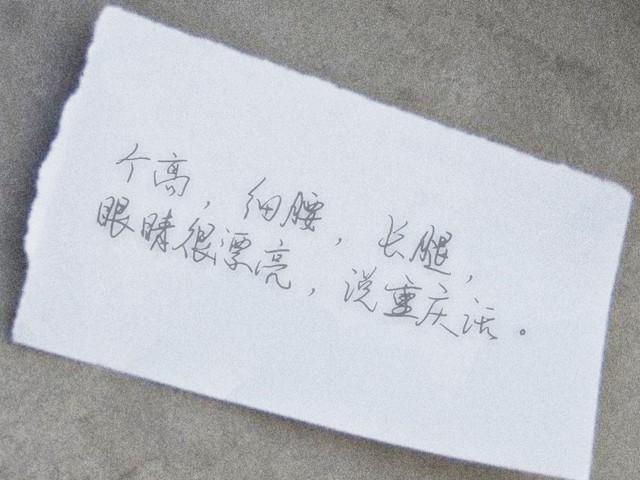 个高，细腰，长腿，
眼睛很漂亮，说重庆话。